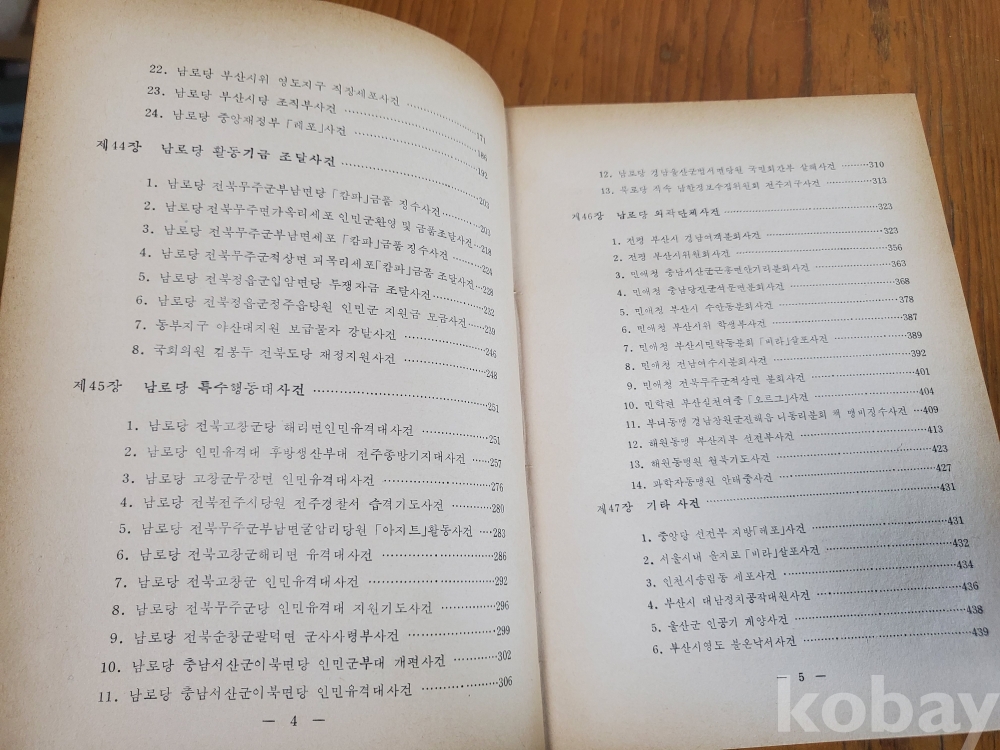 22. 남로당 부산시위 영도지구 직장세포사건 ……171
23. 남로당 부산시당 조직부사건 ……186
24. 남로당 중앙재정부 「레포」사건 ……192
제44장 남로당 활동기금 조달사건 ……203
1. 남로당 전북무주군부남면당 「캄파」금품 징수사건 ……201
2. 남로당 전북무주면가옥리세포 인민군환영 및 금품조달사건 ……218
3. 남로당 전북무주군부남면세포 「캄파」금품 징수사건 ……224
4. 남로당 전북무주군적상면 괴목리세포「캄파」금품 조달사건 ……228
5. 남로당 전북정읍군입암면당 투쟁자금 조달사건 ……232
6. 남로당 전북정읍군정주읍당원 인민군 지원금 모금사건 ……239
7. 동부지구 야산대지원 보급물자 강탈사건 ……246
8. 국회의원 김봉두 전북도당 재정지원사건 ……248
제45장 남로당 특수행동대사건 ……251
1. 남로당 전북고창군당 해리면인민유격대사건 ……251
2. 남로당 인민유격대 후방생산부대 전주종방기지대사건 ……257
3. 남로당 고창군무장면 인민유격대사건 ……276
4. 남로당 전북전주시당원 전주경찰서 습격기도사건 ……280
5. 남로당 전북무주군부남면굴암리당원 「아지트」활동사건 ……283
6. 남로당 전북고창군해리면 유격대사건 ……286
7. 남로당 전북고창군 인민유격대사건 ……292
8. 남로당 전북무주군당 인민유격대 지원기도사건 ……296
9. 남로당 전북순창군팔덕면 군사사령부사건 ……299
10. 남로당 충남서산군이북면당 인민군부대 개편사건 ……302
11. 남로당 충남서산군이북면당 인민유격대사건 ……306
— 4 —
12. 남로당 경남울산군범서면당원 국민회간부 살해사건 ……310
13. 북로당 직수 남한정보수집위원회 전주지구사건 ……313
제46장 남로당 외곽단체사건 ……323
1. 전평 부산시 경남여객분회사건 ……323
2. 전평 부산시위원회사건 ……356
3. 민애청 충남서산군근흥면안기리분회사건 ……363
4. 민애청 충남당진군석문면분회사건 ……368
5. 민애청 부산시 수안동분회사건 ……378
6. 민애청 부산시위 학생부사건 ……387
7. 민애청 부산시민락동분회 「비라」살포사건 ……389
8. 민애청 전남여수시분회사건 ……392
9. 민애청 전북무주군적상면 분회사건 ……401
10. 민학련 부산실천여중 「오르그」사건 ……404
11. 부녀동맹 경남창원군진해읍 니동리분회 책 맹비징수사건 …409
12. 해원동맹 부산지부 선전부사건 ……413
13. 해원동맹원 월북기도사건 ……423
14. 과학자동맹원 안태중사건 ……427
제47장 기타 사건 ……431
1. 중앙당 선전부 지방「레포」사건 ……431
2. 서울시내 을지로 「비라」살포사건 ……432
3. 인천시송림동 세포사건 ……434
4. 부산시 대남정치공작대원사건 ……436
5. 울산군 인공기 게양사건 ……438
6. 부산시영도 불온낙서사건 ……439
— 5 —
kobay